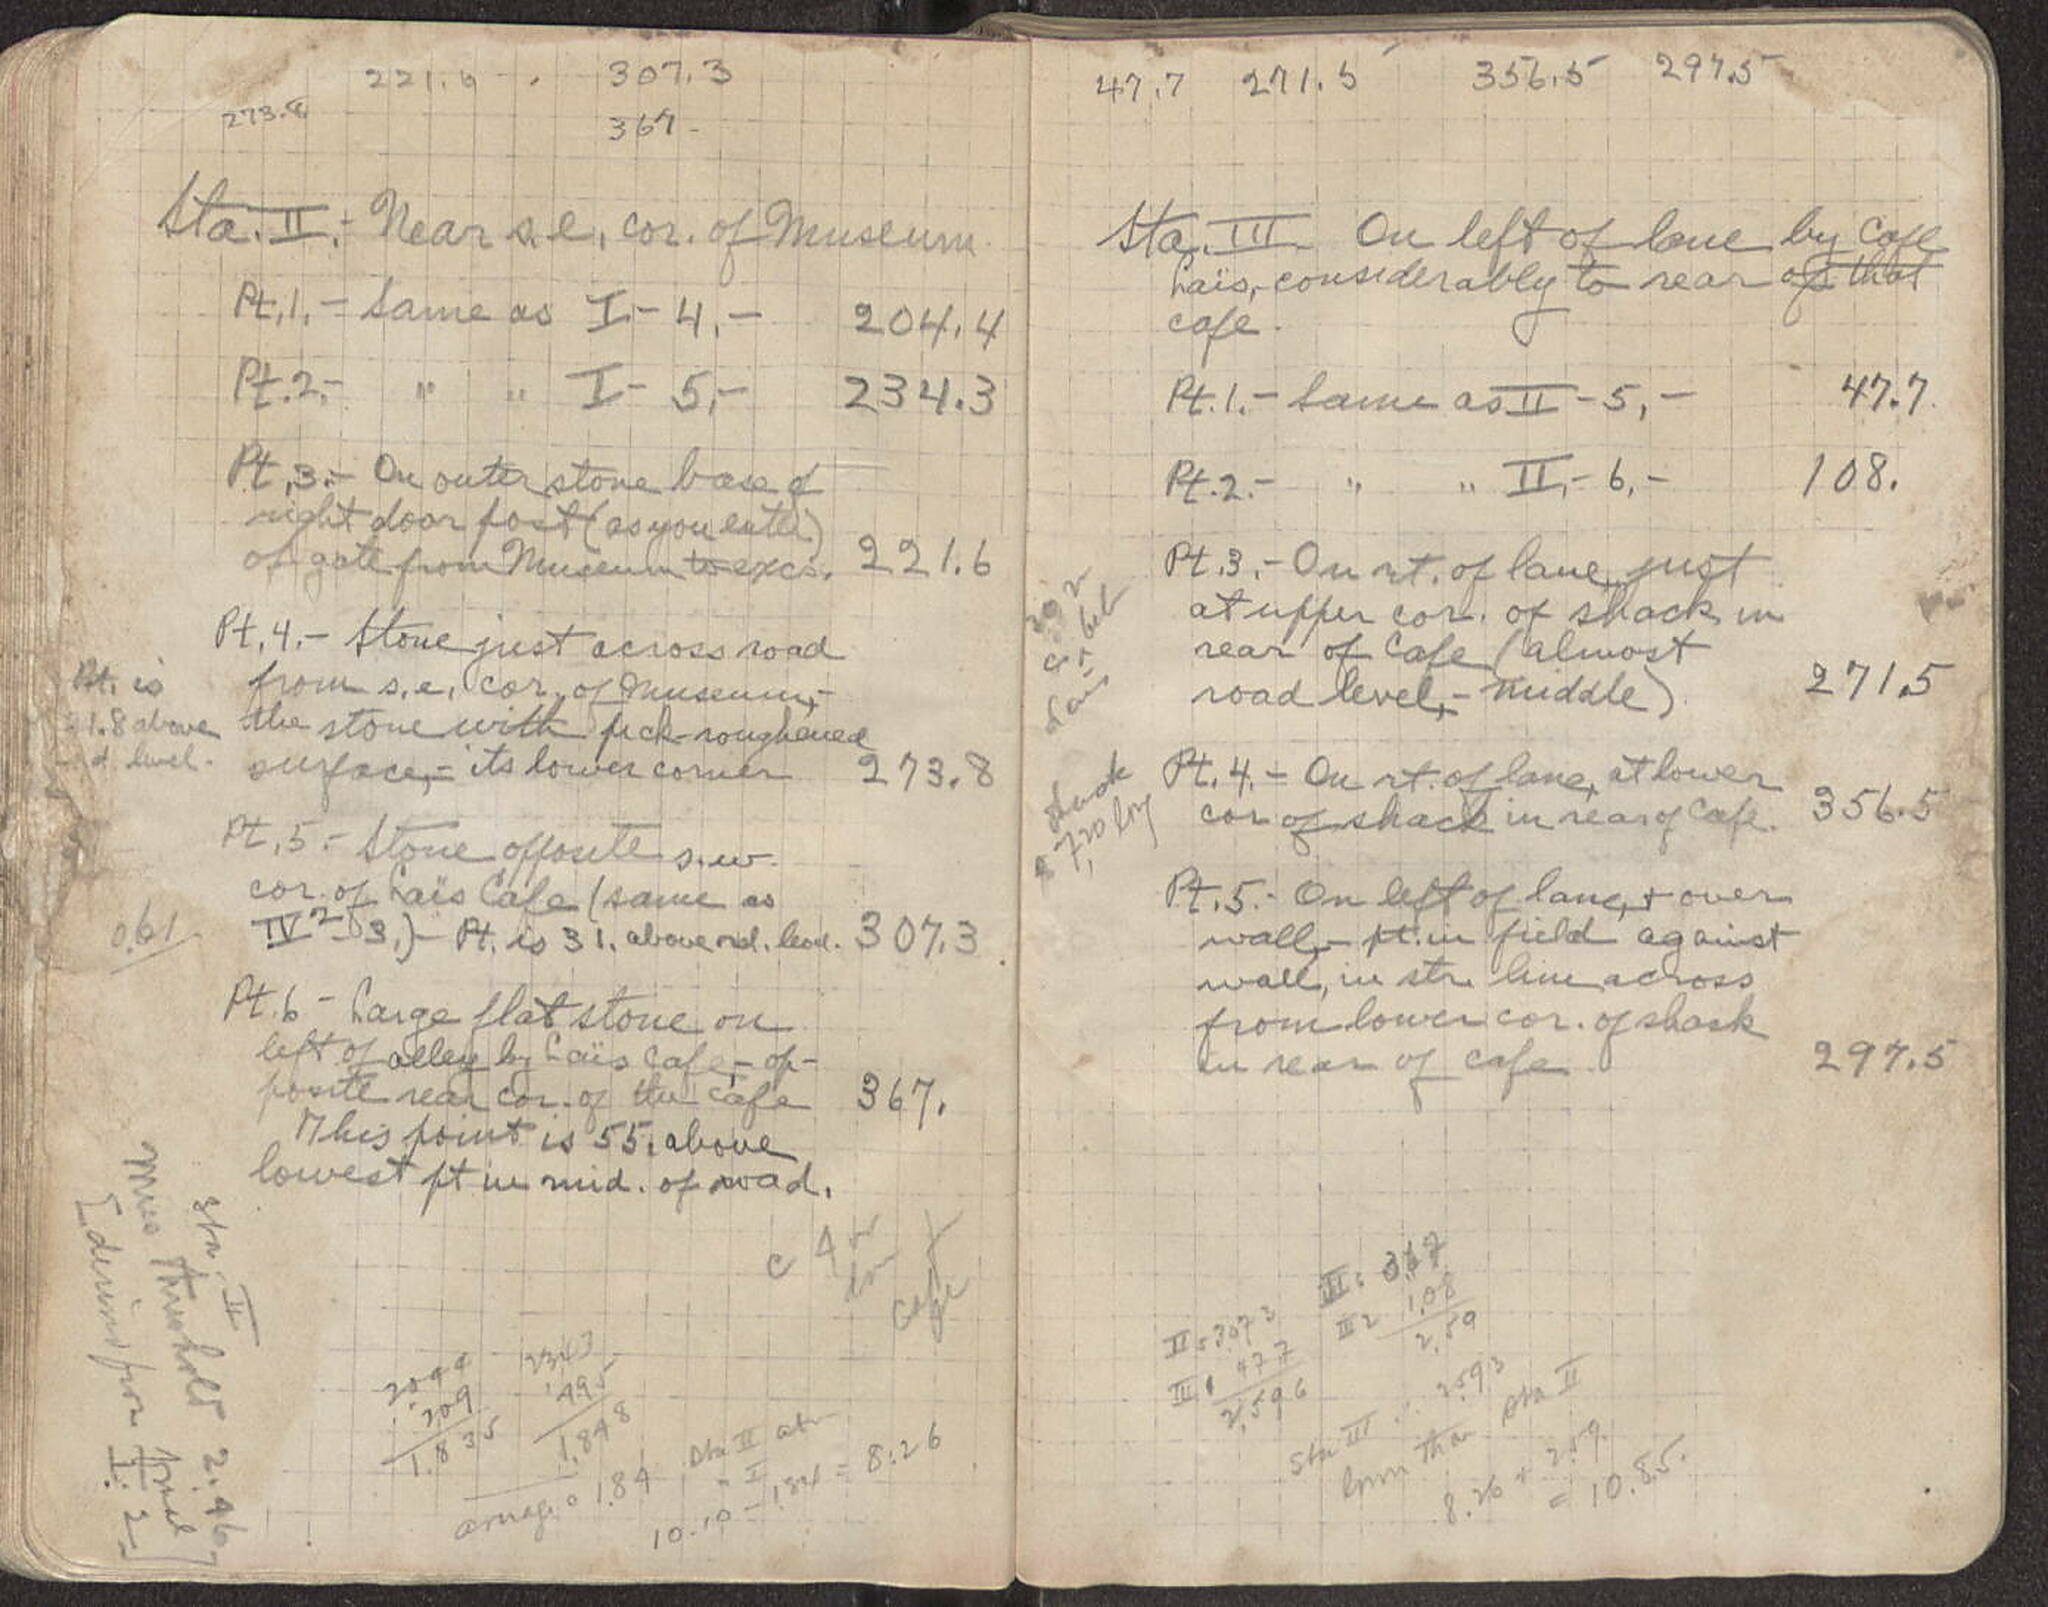 221.6 . 307.3
273.8
367-
Sta. II.- Near s.e. cor. of Museum
Pt.1.- Same as I-4,- 204.4
Pt.2.- " " I-5,- 234.3
Pt.3.- On outer stone base of
right door post (as you enter)
of gate from Museum to excs. 221.6
Pt.4.- Stone just across road
from s.e. cor. of Museum,-
the stone with pick-roughened
surface,- its lower corner 273.8
Pt. is
1.8 above
level.
Pt.5.- Stone opposite s.w.
cor. of Laïs Cafe (same as
IV²-3.)- Pt. is 31. above rd. level. 307.3
0.61
Pt.6- Large flat stone on
left of alley by Laïs Cafe,- op-
posite rear cor. of the Cafe 367.
This point is 55. above
lowest pt in mid. of road.
Sta II
Mus Threshold 2.46
[derived from I. 2]
2044
.209
1.835
2343
.495
1.848
average = 1.84
Sta II
" I
10.10 - 1.84 = 8.26
47.7 271.5 356.5 297.5
Sta. III. On left of lane by Cafe
Laïs,- considerably to rear of that
cafe.
Pt.1.- Same as II-5,- 47.7
Pt.2.- " " II,-6,- 108.
Pt.3.- On rt. of lane, just
at upper cor. of shack in
rear of Cafe (almost
road level,- middle) 271.5
Pt.4.- On rt. of lane, at lower
cor. of shack in rear of Cafe. 356.5
shack
7.20 long
Pt.5.- On left of lane, + over
wall,- pt. in field against
wall, in str. line across
from lower cor. of shack
in rear of cafe 297.5
II 5 307 3
III 1 47 7
2.596
II 6 367
III 2 1.08
2.59
Sta III 2.593
lower than Sta II
8.26 + 2.59
= 10.85.